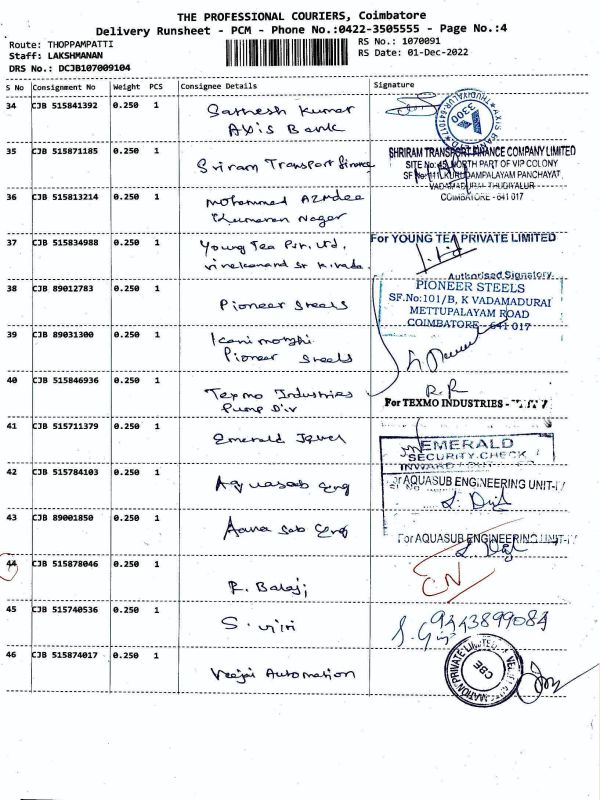 THE PROFESSIONAL COURIERS, Coimbatore
Delivery Runsheet - PCM - Phone No.:0422-3505555 - Page No.:4
Route: THOPPAMPATTI
Staff: LAKSHMANAN
DRS No.: DCJB107009104
RS No.: 1070091
RS Date: 01-Dec-2022
S No Consignment No Weight PCS Consignee Details Signature
34 CJB 515841392 0.250 1 Sathesh Kumar
Axis Bank
3300
35 CJB 515871185 0.250 1 Sriram Transport finance
SHRIRAM TRANSPORT FINANCE COMPANY LIMITED
SITE No:45, NORTH PART OF VIP COLONY
KURUDAMPALAYAM PANCHAYAT,
VADAMADURAI THUDIYALUR
COIMBATORE - 641 017
36 CJB 515813214 0.250 1 Mohammed
Kumaran Nagar
37 CJB 515834988 0.250 1 Young Tea Pvt. Ltd.
For YOUNG TEA PRIVATE LIMITED
Authorised Signatory
38 CJB 89012783 0.250 1 Pioneer Steels
PIONEER STEELS
SF.No:101/B, K VADAMADURAI
METTUPALAYAM ROAD
COIMBATORE - 641 017
39 CJB 89031300 0.250 1 Kanimozhi
Pioneer Steels
40 CJB 515846936 0.250 1 Texmo Industries
Pump Div
R.R
For TEXMO INDUSTRIES -
41 CJB 515711379 0.250 1 Emerald Jewel
EMERALD
SECURITY CHECK
INWARD
42 CJB 515784103 0.250 1 Aquasab Eng
For AQUASUB ENGINEERING UNIT-IV
43 CJB 89001850 0.250 1 Aqua Sab Eng
For AQUASUB ENGINEERING UNIT-IV
44 CJB 515878046 0.250 1 R. Balaji
CN
45 CJB 515740536 0.250 1 S. Viji
9443899084
46 CJB 515874017 0.250 1 Veejai Automation
CBE